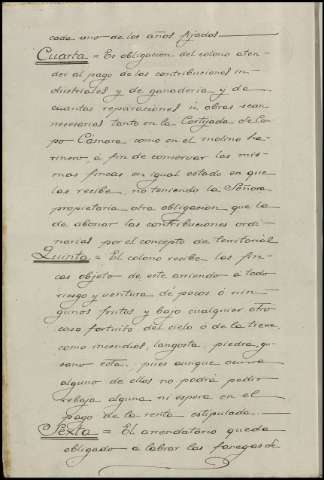 cada uno de los años fijados
Cuarta = Es obligacion del colono aten-
der al pago de las contribuciones in-
dustriales y de ganaderia y de
cuantas reparaciones ú obras sean
necesarias tanto en la Cortijada de Cam-
po Cámara como en el molino ha-
rinero, á fin de conservar las mis-
mas fincas en igual estado en que
las recibe, no teniendo la Señora
propietaria otra obligacion que la
de abonar las contribuciones ordi-
narias por el concepto de territorial
Quinta = El colono recibe las fin-
cas objeto de este arriendo á todo
riesgo y ventura de pocos ó nin-
gunos frutos y bajo cualquier otro
caso fortuito del cielo ó de la tierra
como incendios, langosta, piedra, gu-
sano etca. pues aunque ocurra
alguno de ellos no podrá pedir
rebaja alguna ni espera en el
pago de la renta estipulada.
Sexta = El arrendatario queda
obligado á labrar las fanegas de